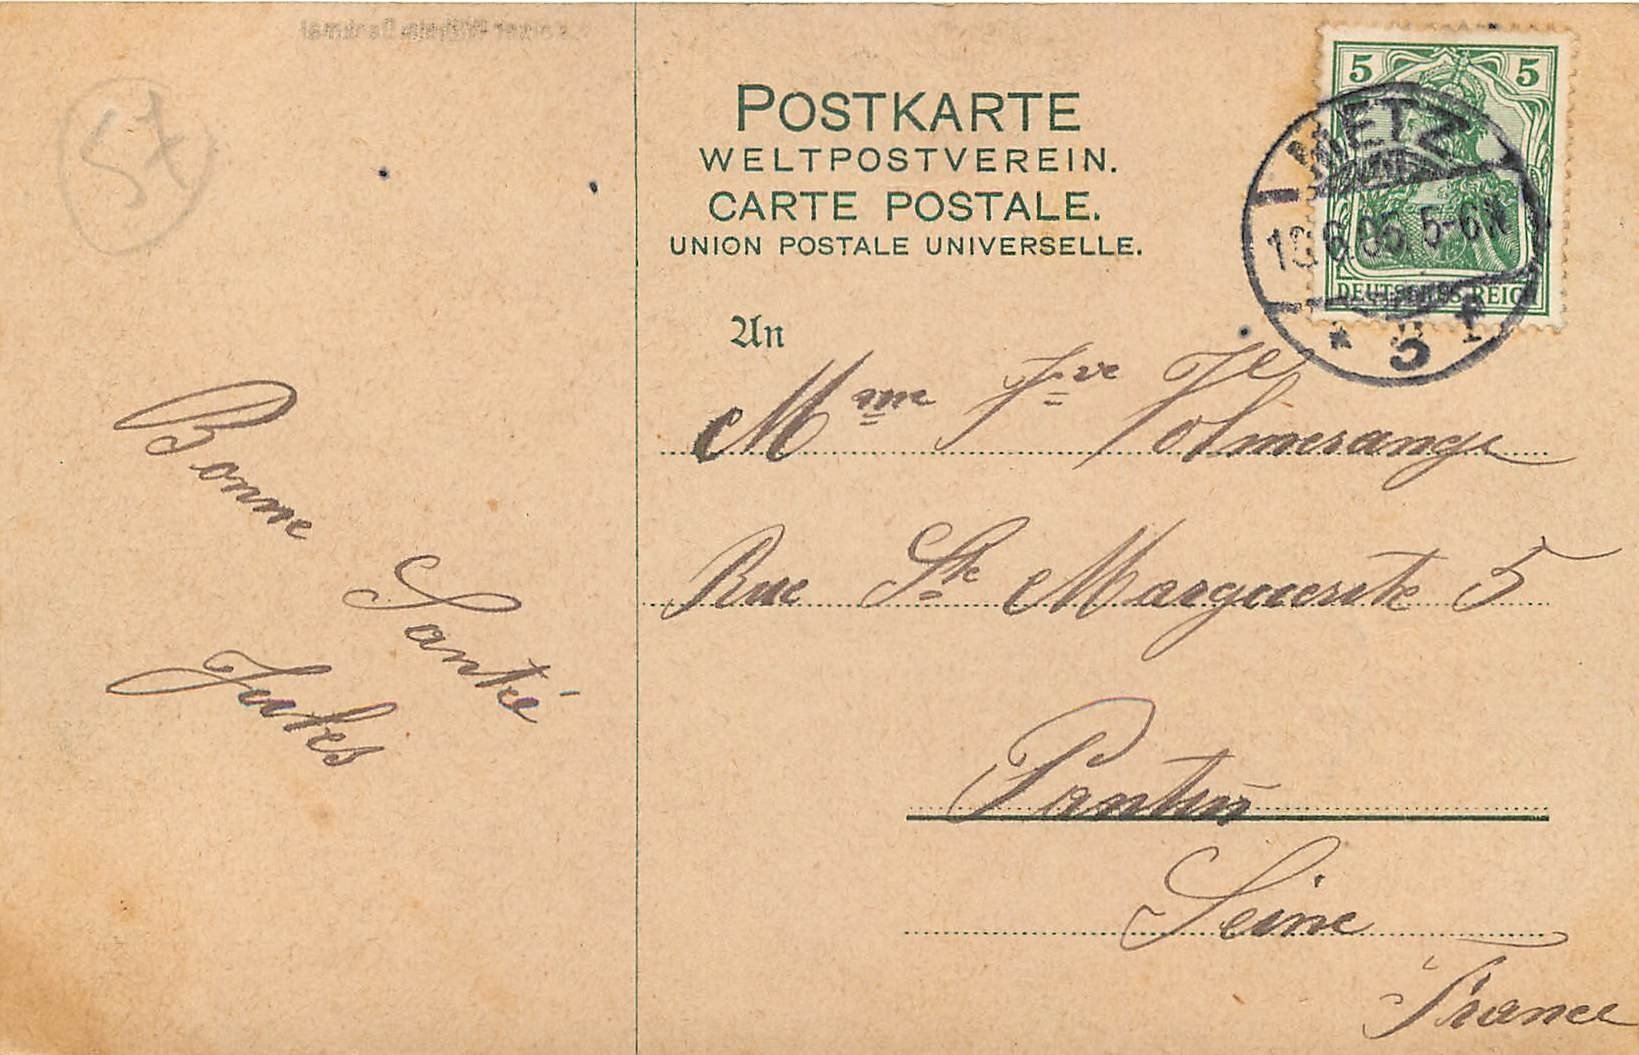 57
POSTKARTE
WELTPOSTVEREIN.
CARTE POSTALE.
UNION POSTALE UNIVERSELLE.
5 5
DEUTSCHES REICH
METZ
5-6N
An
Mme Vve
Rue Ste Marguerite 5
Pantin
Seine
France
Bonne
Santé
Jules